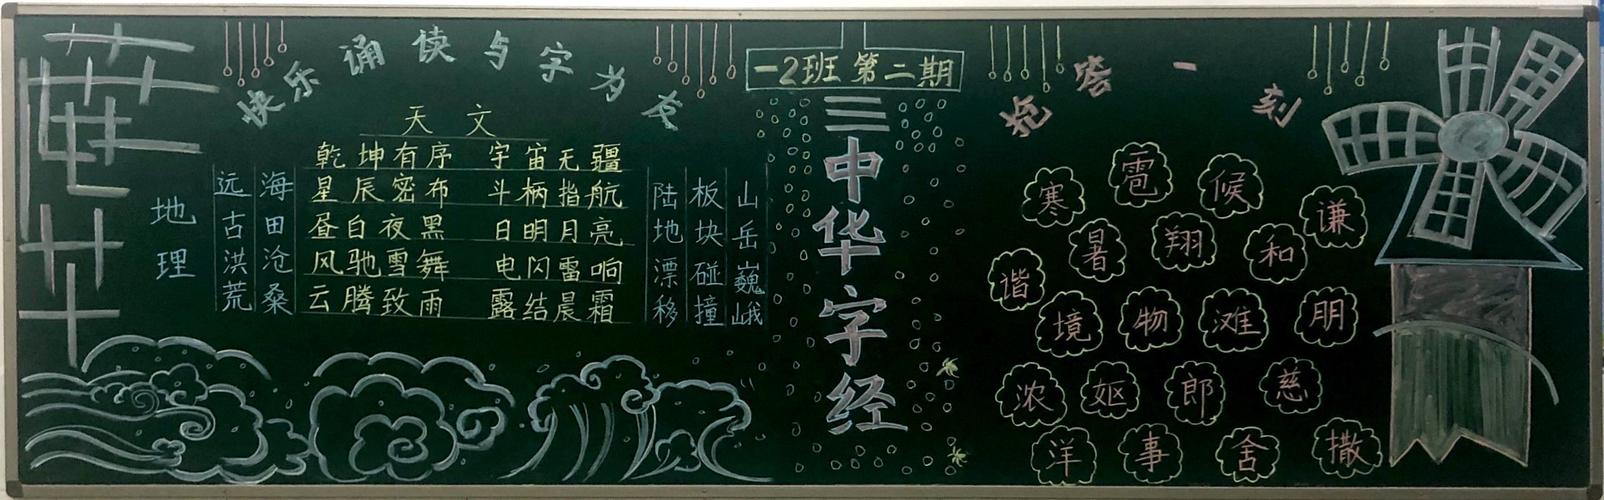 快乐诵读与字为友
一2班 第二期
三中华字经
抢答一刻
天文
乾坤有序 宇宙无疆
星辰密布 斗柄指航
昼白夜黑 日明月亮
风驰雪舞 电闪雷响
云腾致雨 露结晨霜
地理
远古洪荒
海田沧桑
陆地漂移
板块碰撞
山岳巍峨
寒 雹 候 谦
暑 翔 和
谐 境 物 滩 朋
浓 妪 郎 慈
洋 事 舍 撒